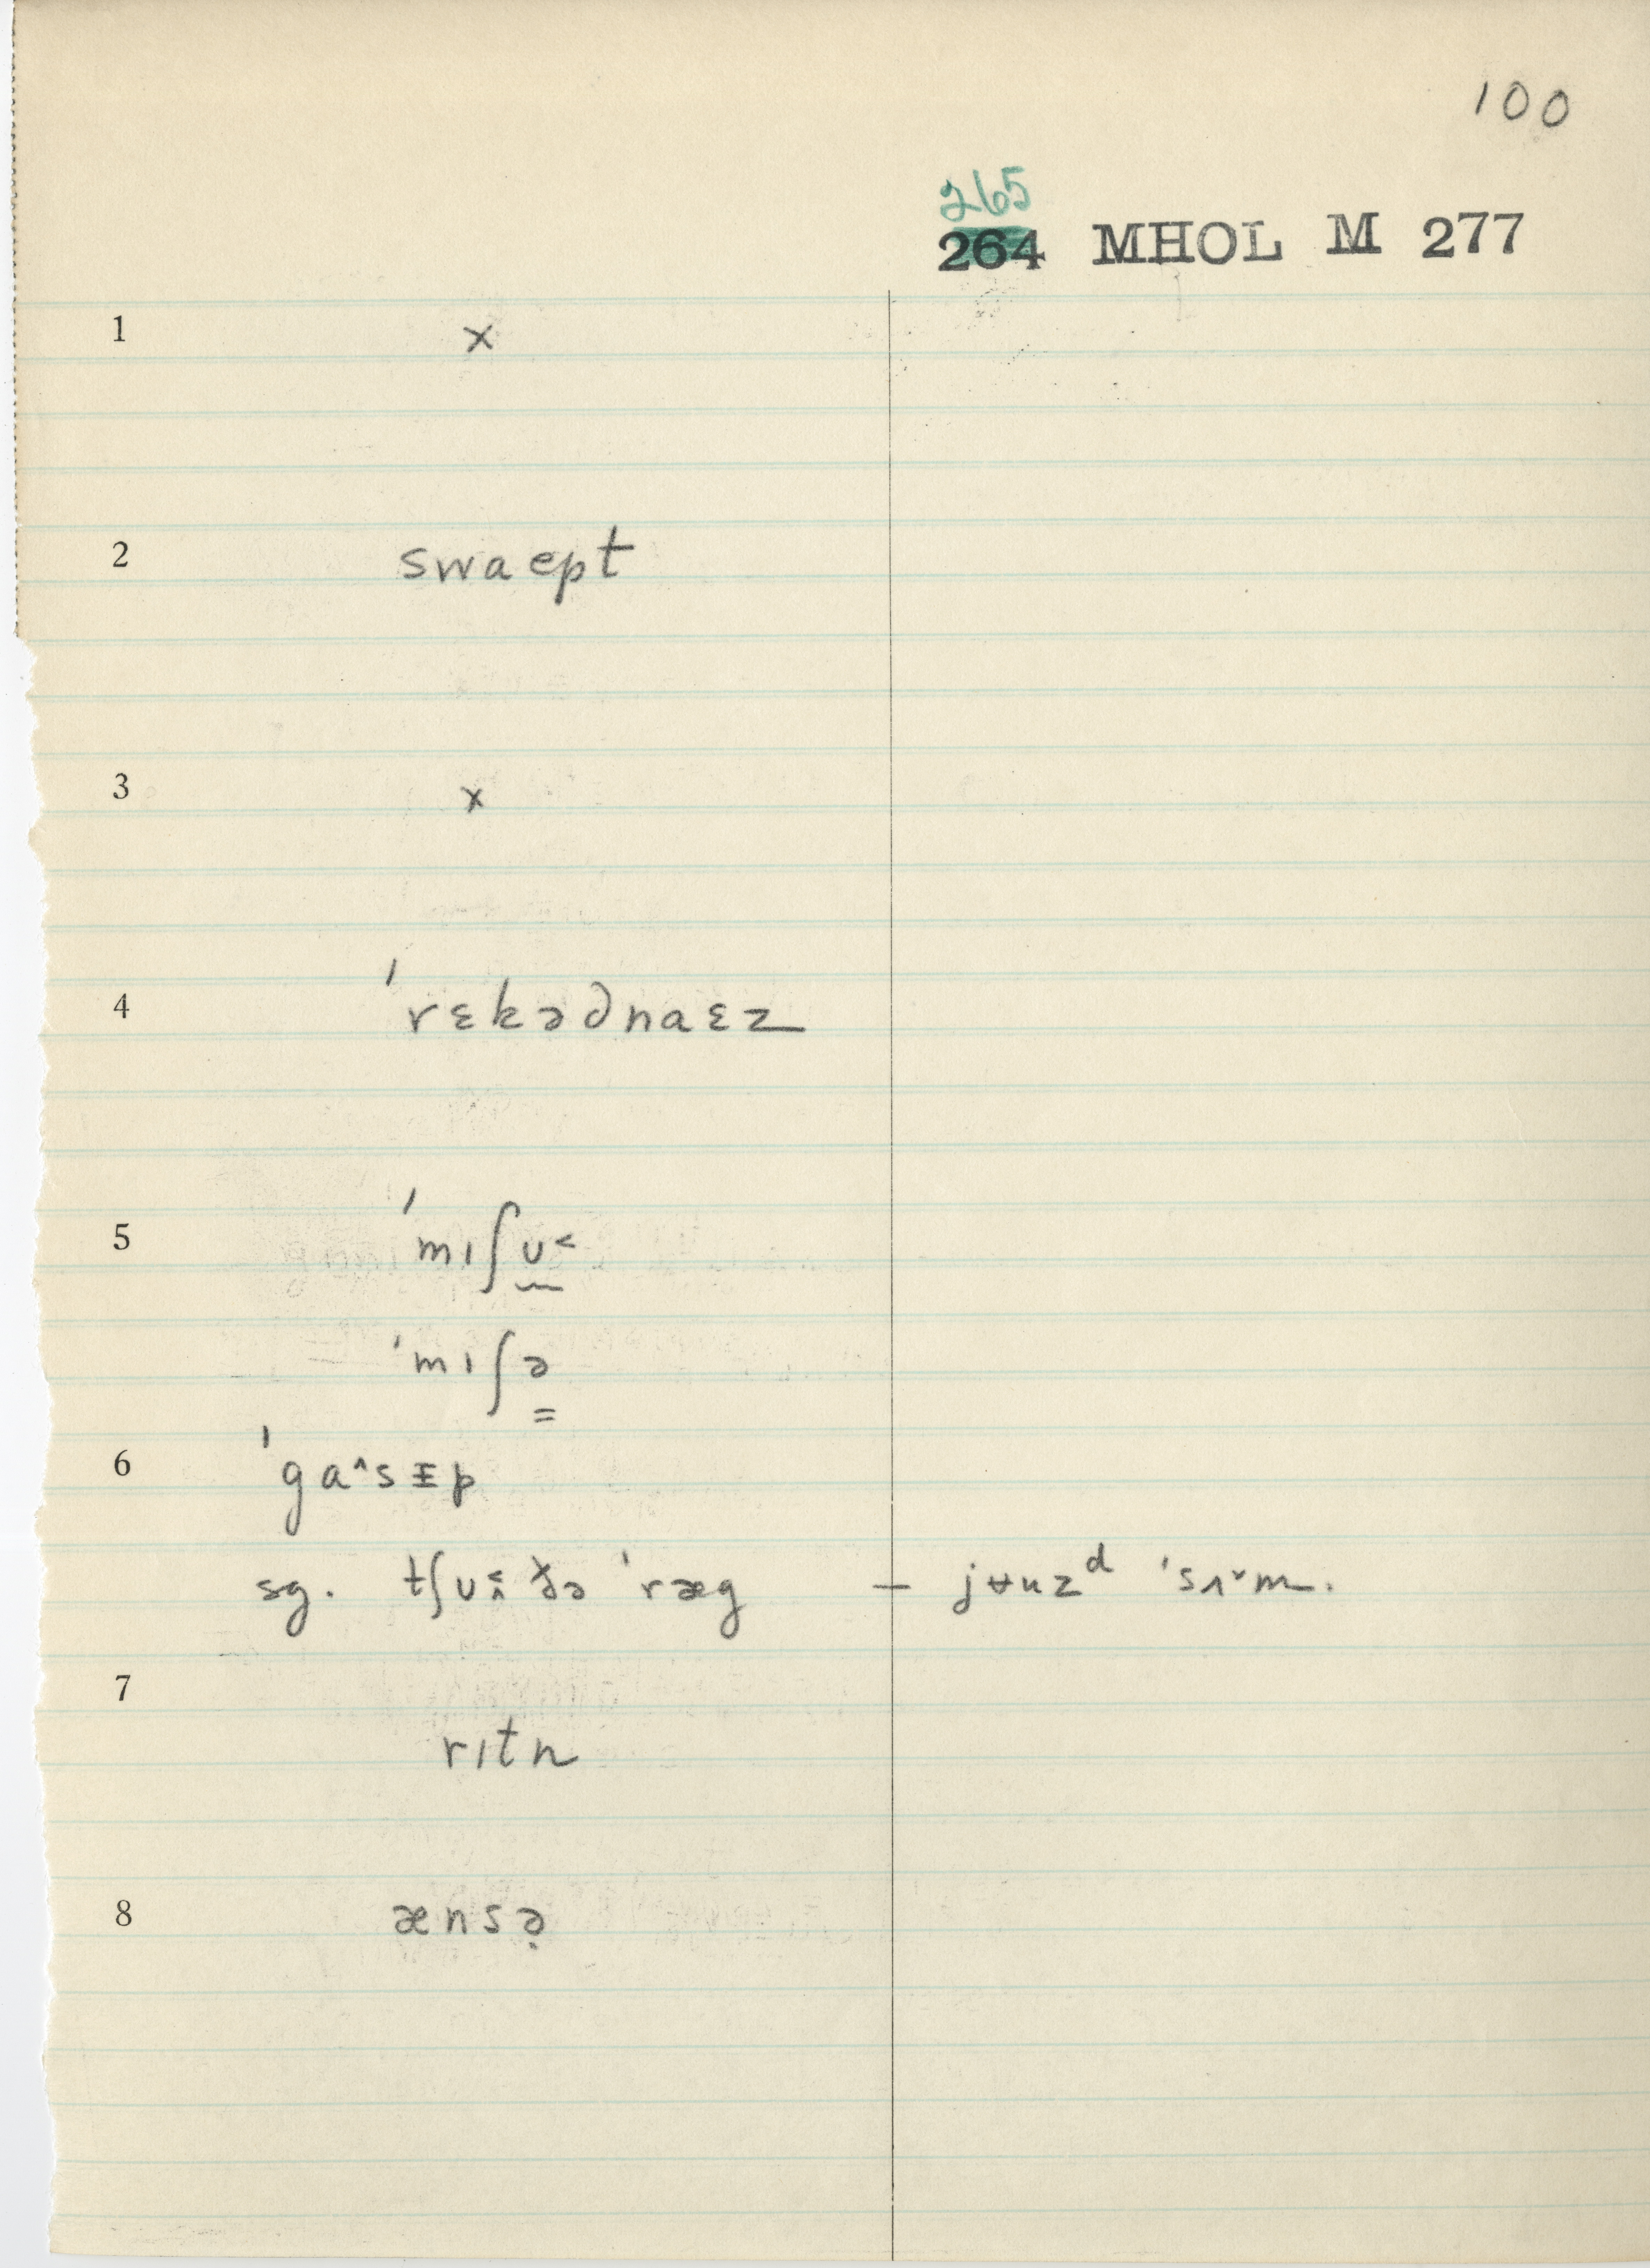 100
265
264 MHOL M 277
1 x
2 swaept
3 x
4 ˈrɛkəgnaɛz
5 ˈmɪʃu˂
ˈmɪʃə
6 ˈga^sɪp
sg. tʃu˂ ðə ˈræg — jʉuzᵈ ˈsʌ˅m.
7 rɪtn
8 ænsə̣